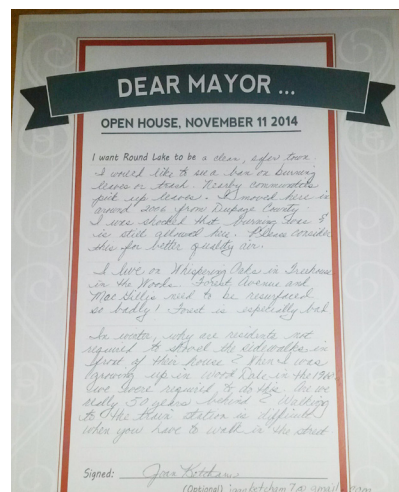 DEAR MAYOR ...
OPEN HOUSE, NOVEMBER 11 2014
I want Round Lake to be a clean, safer town.
I would like to see a ban on burning
leaves or trash. Nearby communities
pick up leaves. I moved here in
around 2006 from Dupage County.
I was shocked that burning
is still allowed here. Please consider
this for better quality air.
I live on Whispering Oaks in Treehouse
in the Woods. Forest Avenue and
MacGillis need to be resurfaced
so badly! Forest is especially bad.
In winter, why are residents not
required to shovel the sidewalks in
front of their house? When I was
growing up in Wood Dale in the
we were required to do this. Are we
really 50 years behind? Walking
to the train station is difficult
when you have to walk in the street
Signed: Joan Ketcham
(Optional)